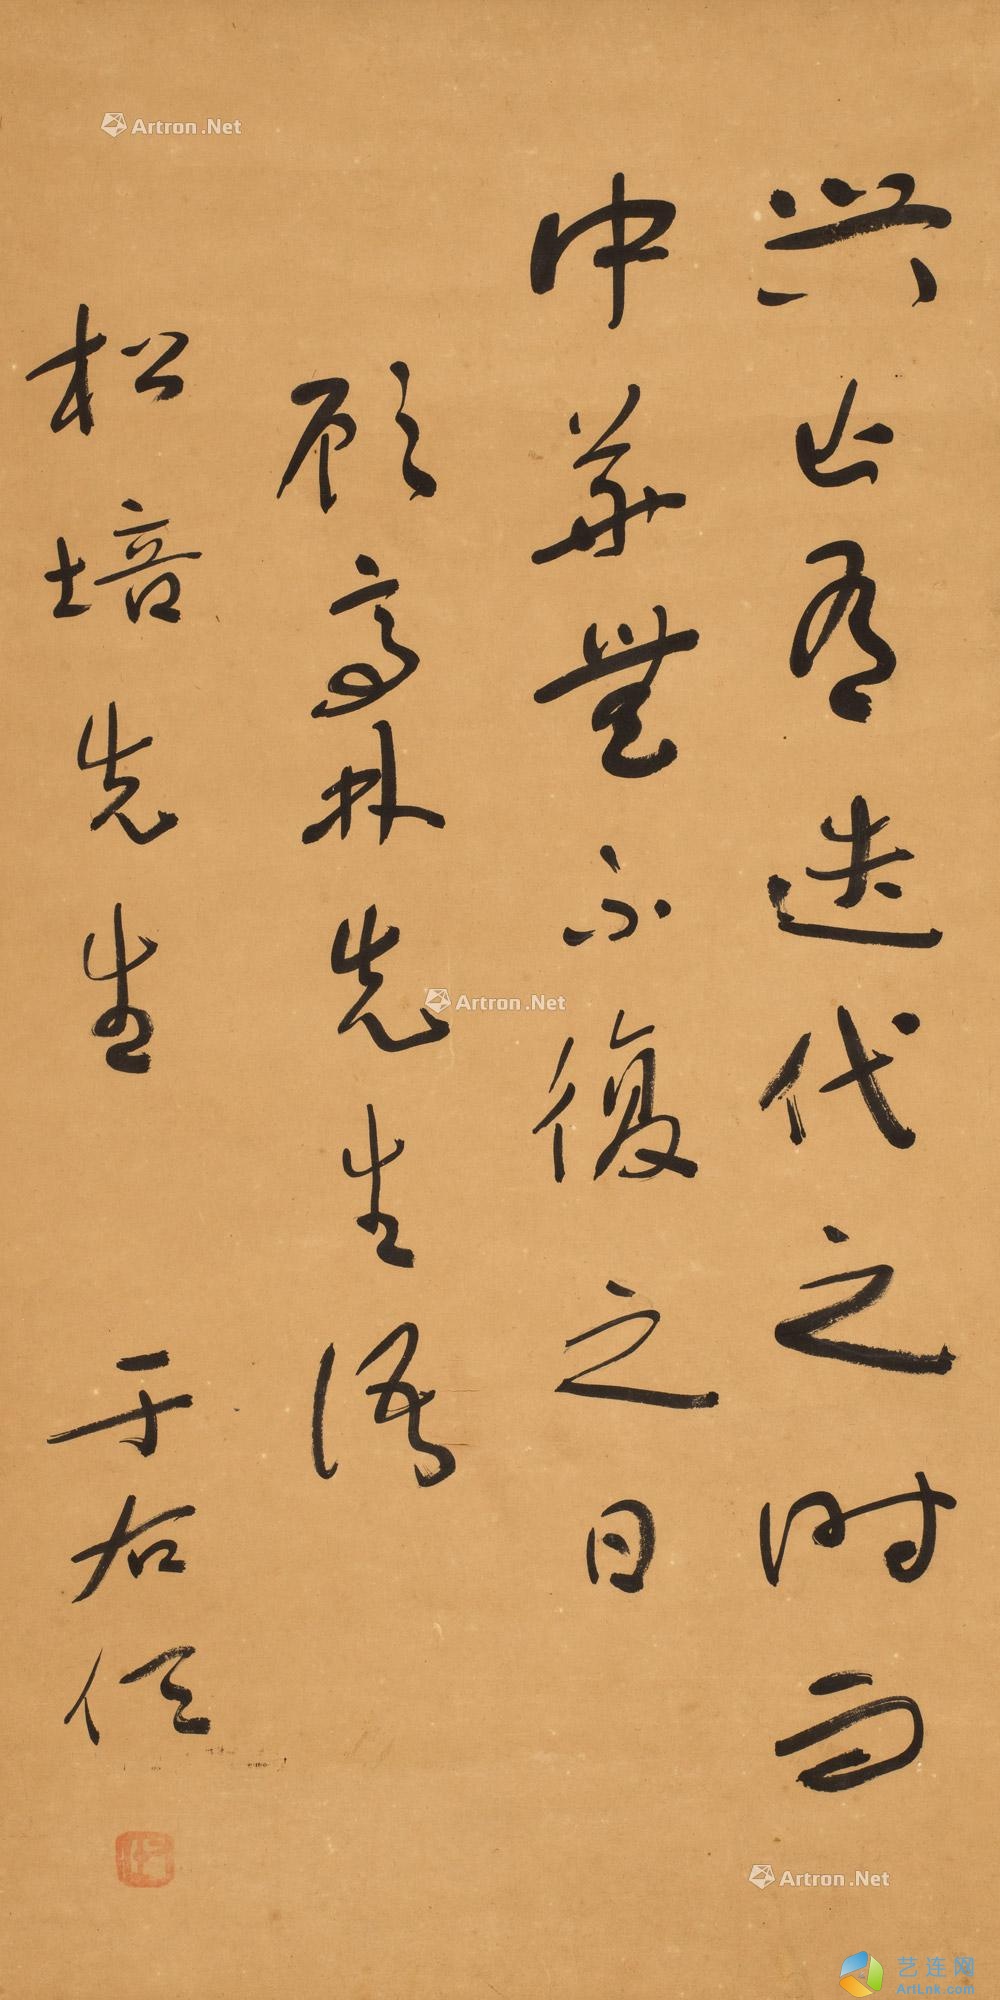 興亡有迭代之時而
中華無不復之日
顧亭林先生語
松培先生 于右任
Artron.Net
Artron.Net
Artron.Net
艺连网
ArtLnk.com